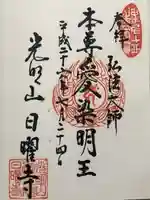 奉拝
弘法大師
本尊愛染明王
平成二十六年七月二十四日
光明山 日曜寺